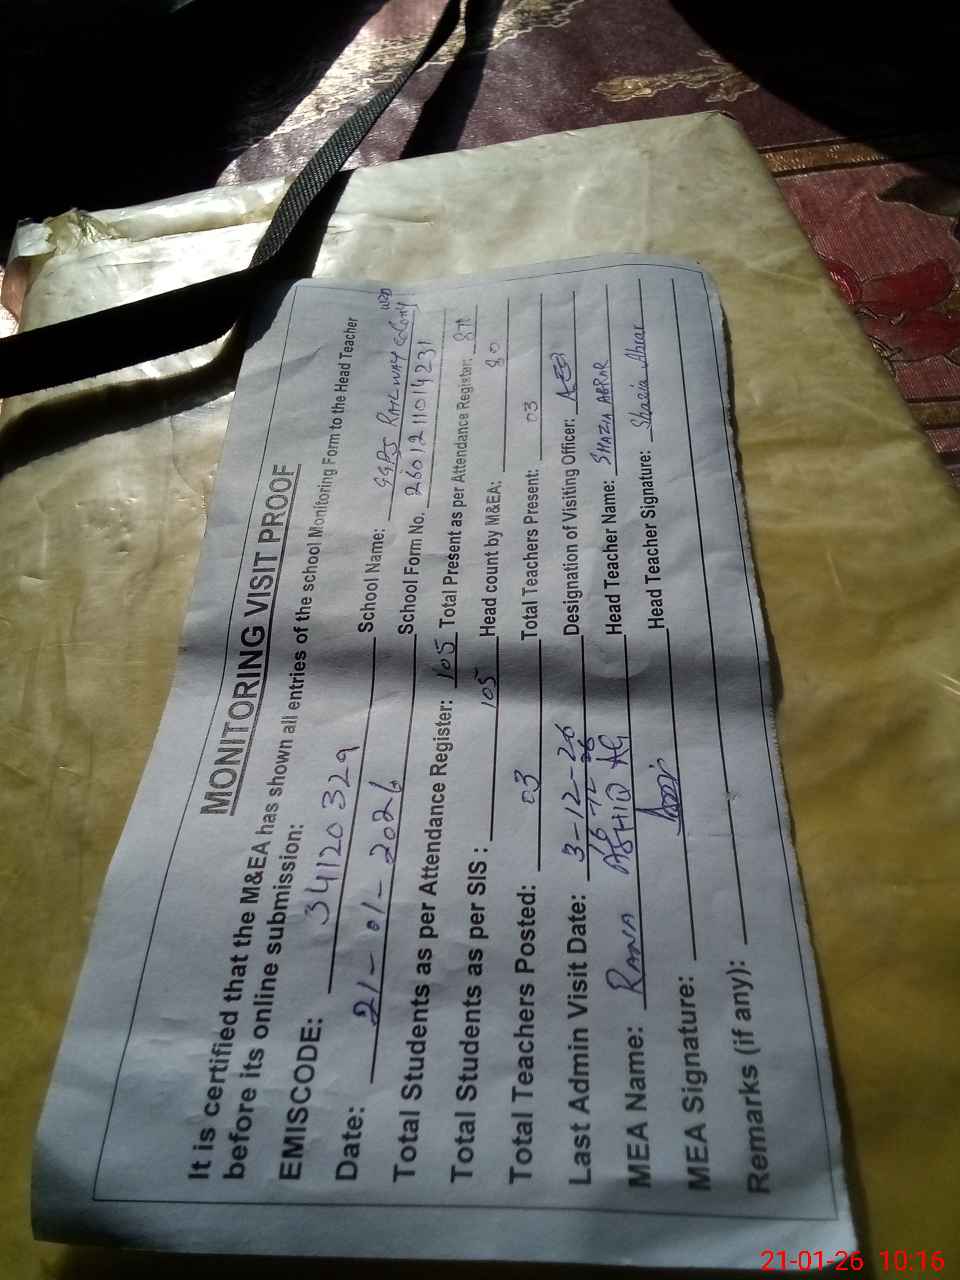 MONITORING VISIT PROOF
It is certified that the M&EA has shown all entries of the school Monitoring Form to the Head Teacher
before its online submission:
EMISCODE: 34120329 School Name: GGPS RAILWAY COLONY
Date: 21-01-2026 School Form No. 2601211014231
Total Students as per Attendance Register: 105 Total Present as per Attendance Register:
Total Students as per SIS : 105 Head count by M&EA: 80
Total Teachers Posted: 03 Total Teachers Present: 03
Last Admin Visit Date: 3-12-26 Designation of Visiting Officer: AEO
MEA Name: RANA ASHIQ Head Teacher Name: SHAZIA ABRAR
MEA Signature: Head Teacher Signature: Shazia Abrar
Remarks (if any):
21-01-26 10:16